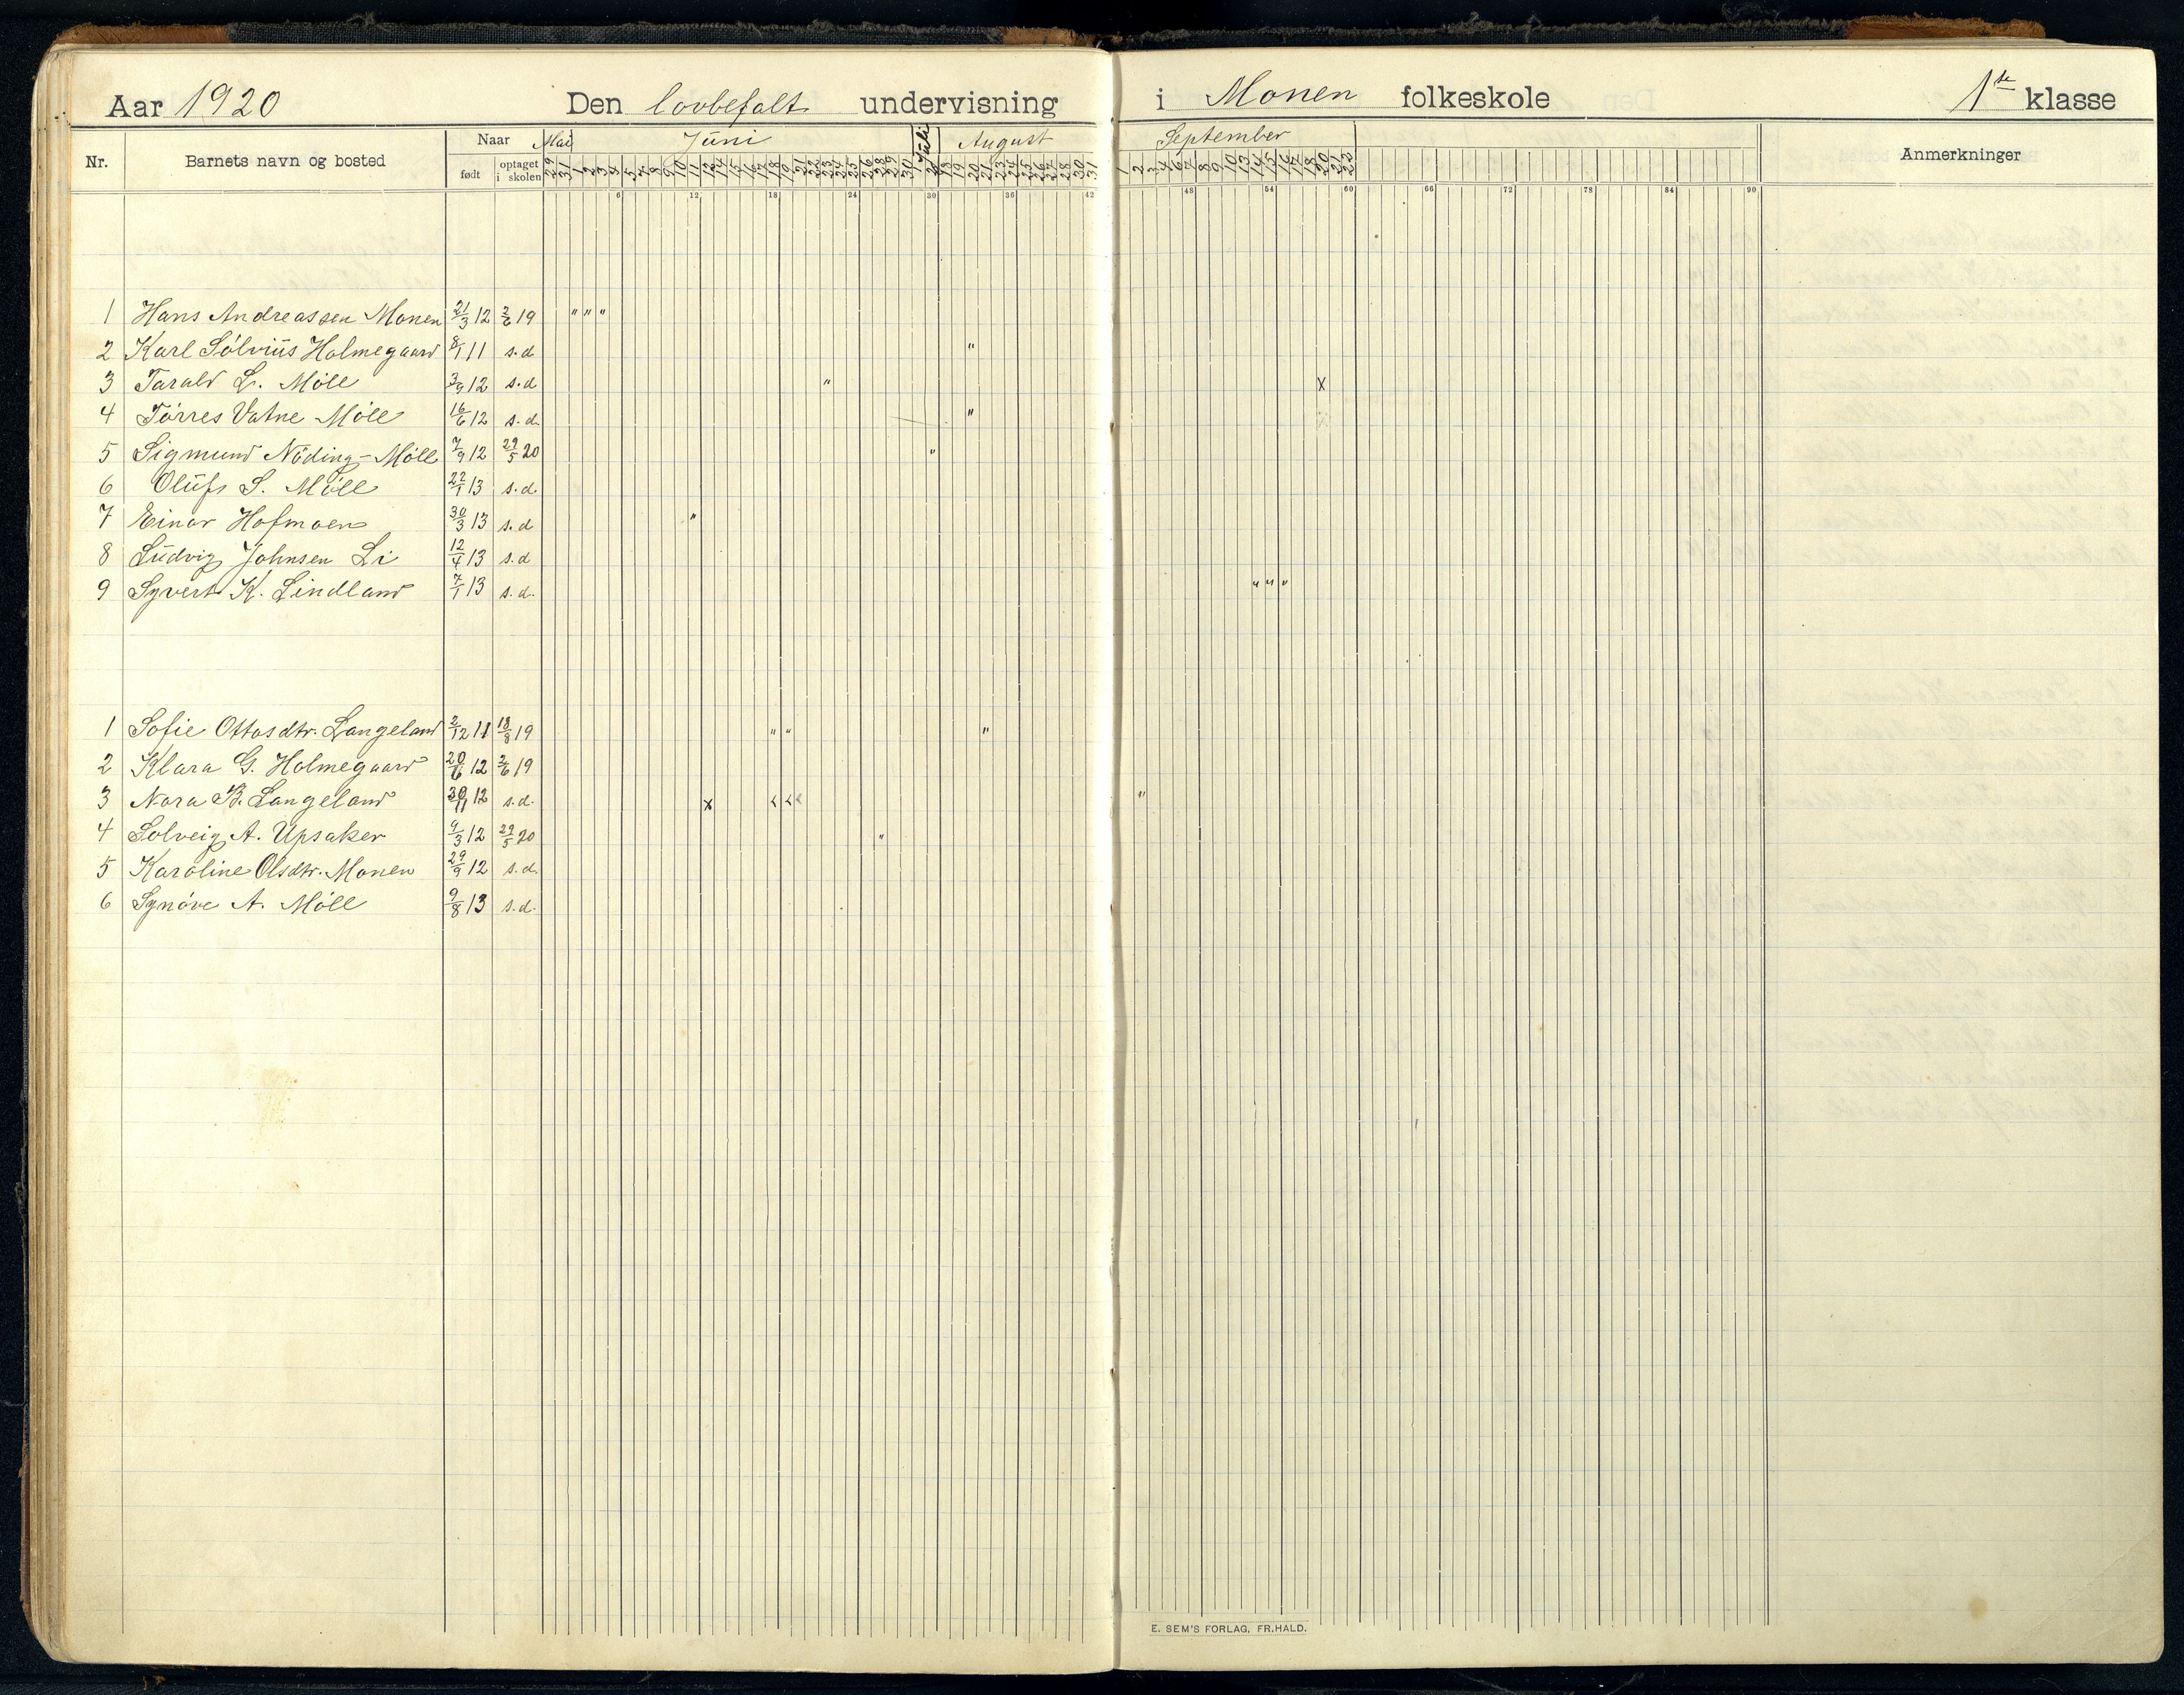 Aar 1920 Den lovbefalt undervisning i Monen folkeskole 1ste klasse
Nr. Barnets navn og bosted Naar Mai Juni Juli August September Anmerkninger
født optaget i skolen
29 31 1 2 3 4 5 7 8 9 10 11 12 14 15 16 17 18 19 21 22 23 24 25 26 28 29 30 1 2 18 19 20 21 23 24 25 26 27 28 30 31 1 2 3 4 6 7 8 9 10 13 14 15 16 17 18 20 21 23
6 12 18 24 30 36 42 48 54 60 66 72 78 84 90
1 Hans Andreassen Monen 21/3 12 2/6 19 " " "
2 Karl Sølviüs Holmegaard 8/1 11 s.d "
3 Tarald L. Møll 3/9 12 s.d " x
4 Tørres Vatne Møll 16/6 12 s.d. "
5 Sigmund Nöding-Møll 7/9 12 29/5 20 "
6 Olüfs S. Møll 22/1 13 s.d.
7 Einar Hofmoen 30/3 13 s.d "
8 Lüdvig Johnsen Li 12/4 13 s.d
9 Syvert K. Lindland 7/1 13 s.d. " " "
1 Sofie Ottosdtr. Langeland 2/12 11 18/8 19 " " "
2 Klara G. Holmegaard 20/6 12 2/6 19
3 Nora B. Langeland 30/11 12 s.d. x "
4 Solveig A. Upsaker 9/3 12 29/5 20 "
5 Karoline Olsdtr. Monen 29/9 12 s.d.
6 Synøve A. Møll 9/8 13 s.d.
E. SEM'S FORLAG, FR.HALD.